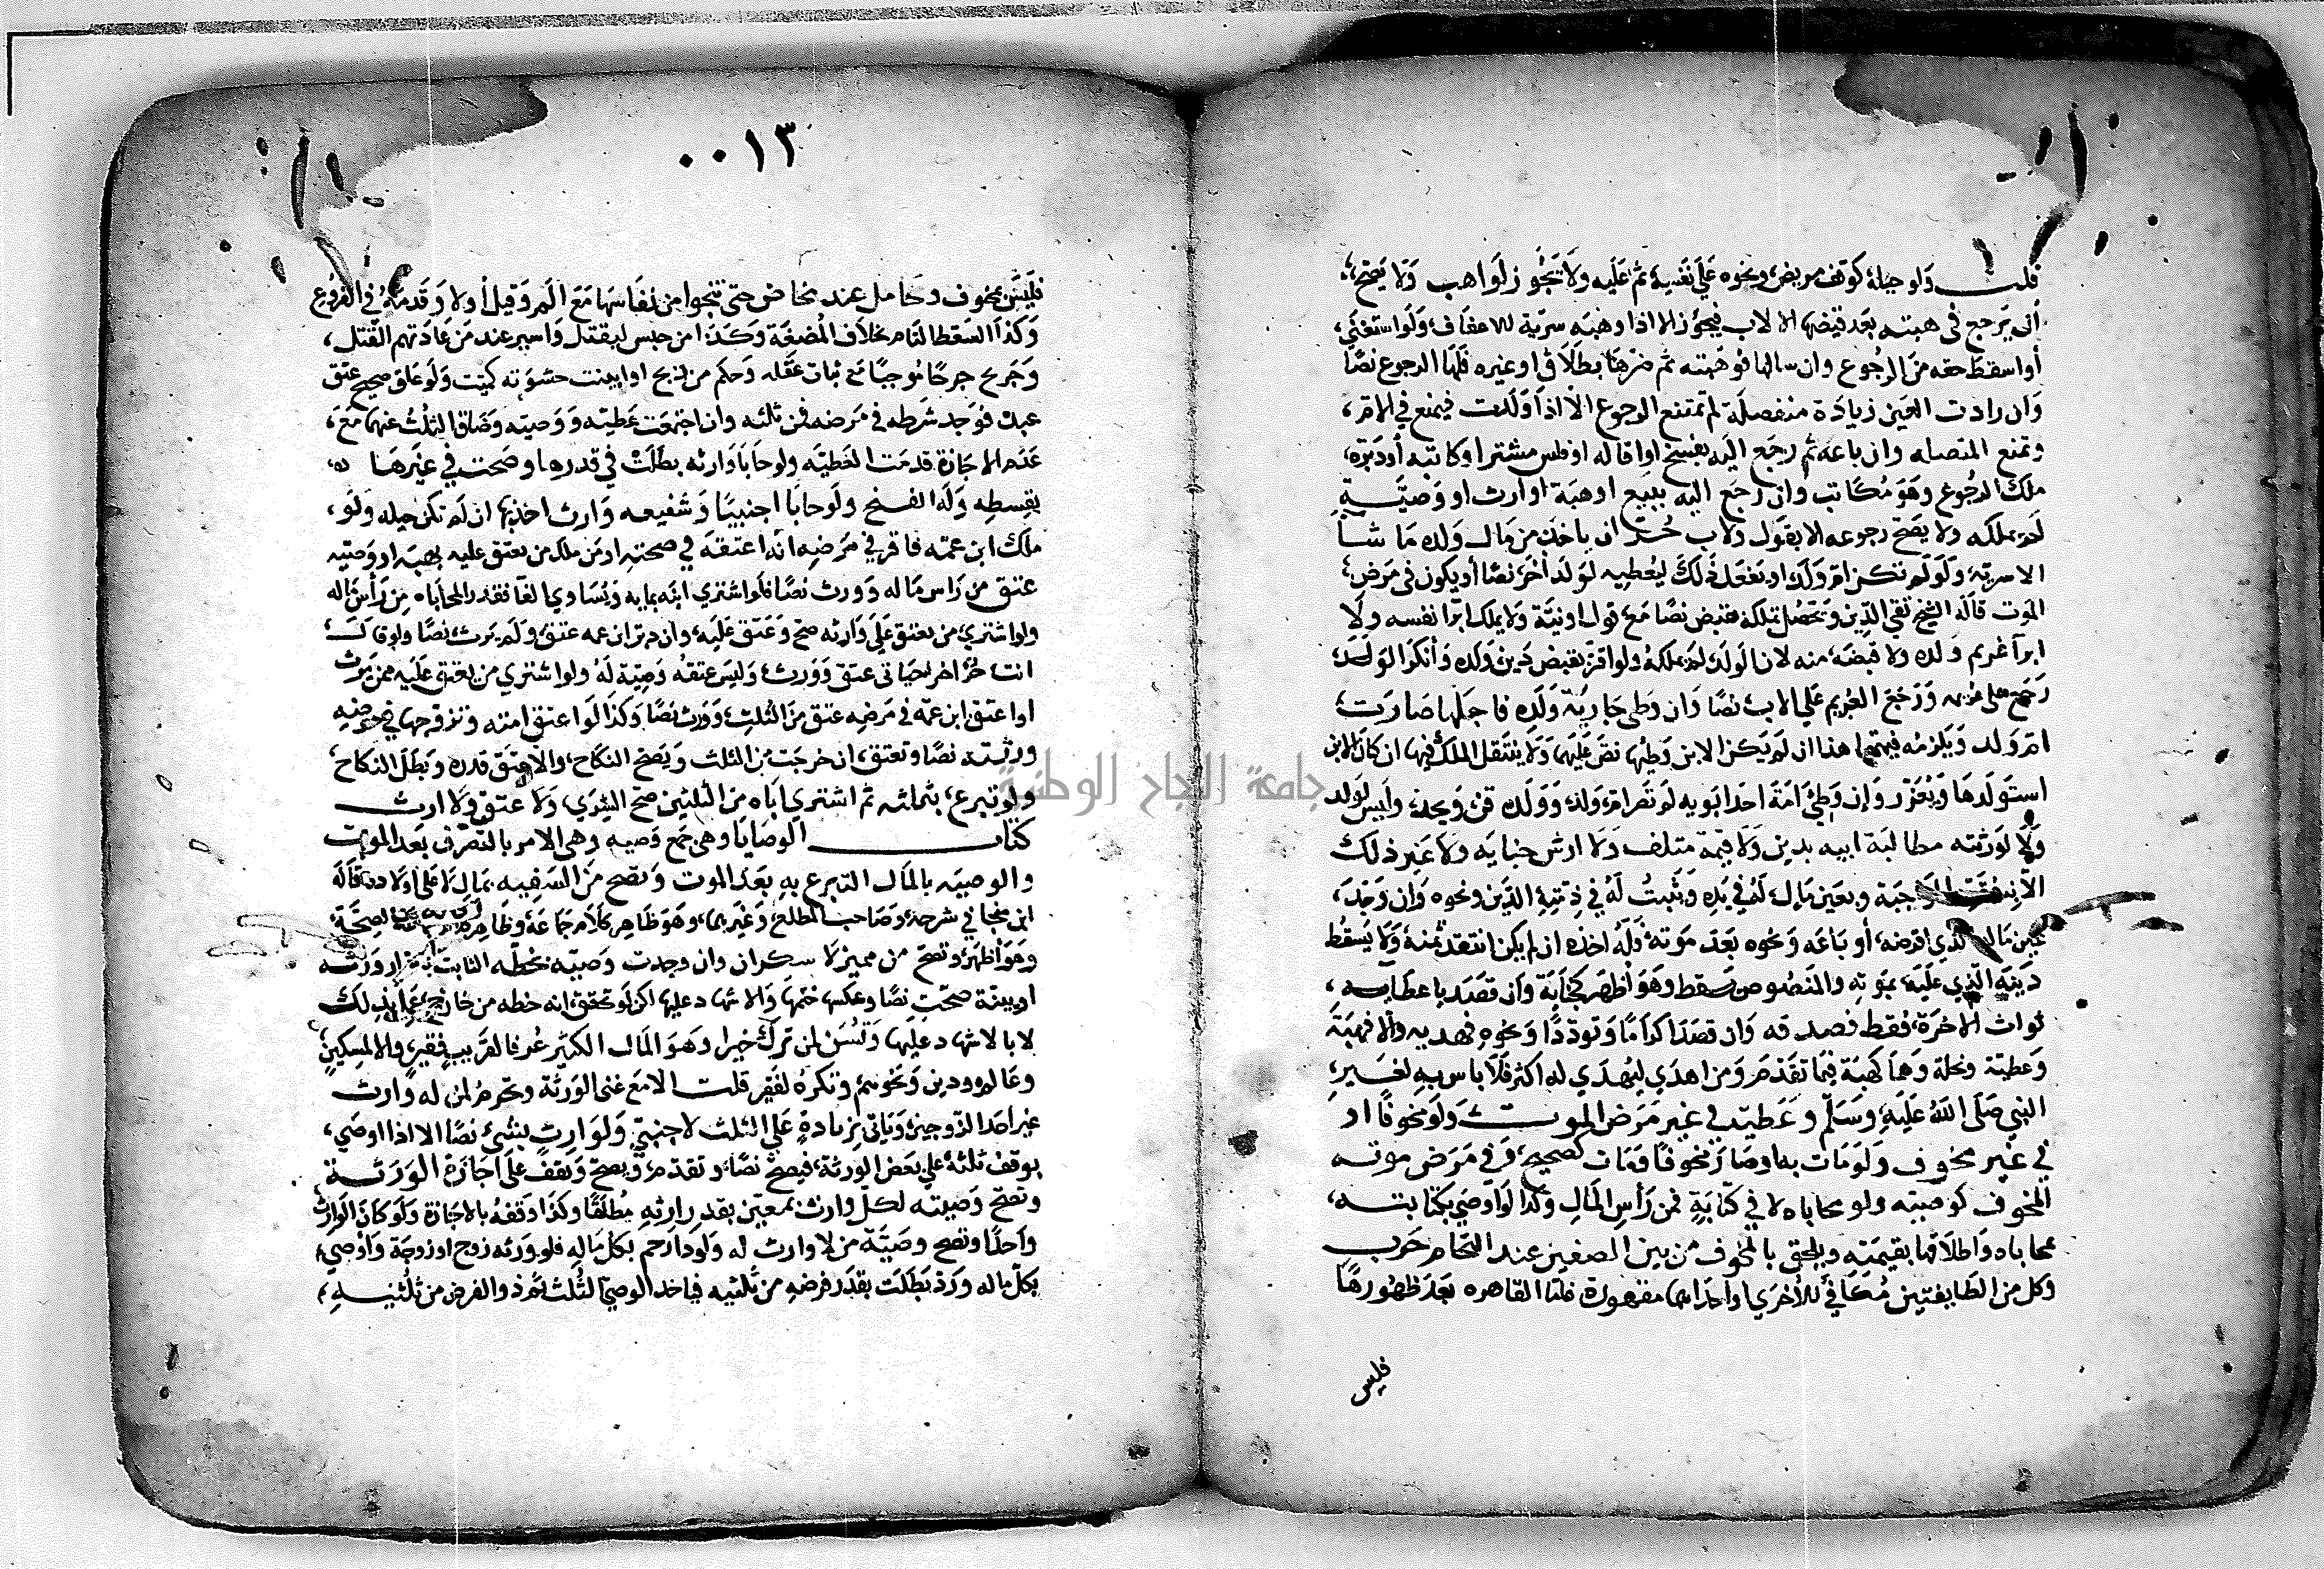 قلت ولو حيلة كوقف مريض ونحوه على نفسه ثم عليه ولا تجوز لواهب ولا يصح،
أن يرجع في هبته بعد قبضها الا لاب فيجوز الا اذا وهبه سرية للاعفاف ولو استغنى،
أو اسقط حقه من الرجوع وان سالها فوهبته ثم ضرها بطلاق او غيره فلها الرجوع نصا
وان زادت العين زيادة منفصلة لم تمتنع الرجوع الا اذا ولدت فيمنع في الام،
وتمنع المتصله وان باعه ثم رجع اليه بفسخ او اقاله او فلس مشترا او كاتبه أو دبره،
ملك الرجوع وهو مكاتب وان رجع اليه ببيع او هبة او ارث او وصية
لم يملكه ولا يصح رجوعه الا بقول ولاب حر ان ياخذ من مال ولده ما شا
الا سريته ولو لم تكن ام ولد او نفعل ذلك ليعطيه لولد أخر نصا أو يكون في مرض،
الموت قاله الشيخ تقي الدين ويحصل تملكه بقبض نصا مع قول او نية ولا يملك ابرا نفسه ولا
ابرآ غريم ولده ولا قبضه منه لان الولد لم يملكه ولو اقر بقبض دين ولده وأنكر الولد،
رجع على غريمه ورجع الغريم على الاب نصا وان وطى جارية ولده فاحبلها صارت
ام ولد ويلزمه قيمتها هذا ان لم يكن الابن وطئها نص عليها ولا ينتقل الملك فيها ان كان الابن
استولدها ويعزر وإن وطئ امة احد ابويه لم تصر ام ولد وولده قن ويحد وليس لولد
ولا لورثته مطالبة ابيه بدين ولا قيمة متلف ولا ارش جناية ولا غير ذلك
الا بنفقته الواجبة وبعين مال له في يده ويثبت له في ذمته الدين ونحوه وان وجد،
عين ماله الذي اقرضه أو باعه ونحوه بعد موته فله اخذه ان لم يكن انتقد ثمنه ولا يسقط
دينه الذي عليه بموته والمنصوص تسقط وهو اظهر كجناية وان قصد باعطايه،
ثواب الاخرة فقط فصدقه وان قصد اكراما وتوددا ونحوه فهديه والا فهبة
وعطية ونحلة وهما كهبة فيما تقدم ومن اهدي ليهدي له اكثر فلا باس به لغير،
النبي صلى الله عليه وسلم وعطيته في غير مرض الموت ولو مخوفا او
في غير مخوف ولو مات به او صار مخوفا ومات كصحيح، وفي مرض موته
المخوف كوصيته ولو محاباه لا في كتابة فمن رأس المال وكذا لو اوصي بكتابته،
محاباه واطلاقها بقيمته ويلحق بالمخوف من بين الصفين عند التحام حرب
وكل من الطايفتين مكافي للأخري او احداهما مقهورة فلنا القاهره بعد ظهورها
فليس
٠٠١٣
فليس بمخوف وحامل عند مخاض حتى تنجوا من نفاسها مع الم وقيل أولا وقدمه في الفروع
وكذا السقط التام بخلاف المضغة وكذا من حبس ليقتل واسير عند من عادتهم القتل،
وجريح جرحا موحيا مع ثبات عقله وحكم من ذبح او ابينت حشوته كميت ولو علق صحيح عتق
عبده فوجد شرطه في مرضه فمن ثلثه وان اجتمعت عطيته ووصيته وضاق الثلث عنهما مع،
عدم الاجازة قدمت العطيه ولو حابا وارثه بطلت في قدرها وصحت في غيرها
بقسطه وله الفسخ ولو حابا اجنبيا وشفيعه وارث اخذ بها ان لم تكن حيله ولو،
ملك ابن عمه فاقر في مرضه انه اعتقه في صحته او من ملك من يعتق عليه بهبة او وصيه
عتق من راس ماله وورث نصا فلو اشتري ابنه بمايه ويساوي الفا فقدر المحاباه من رأس ماله
ولو اشتري من يعتق على وارثه صح وعتق عليه، وان دبر ابن عمه عتق ولم يرث نصا ولو قال،
انت حر اخر حياتي عتق وورث وليس عتقه وصية له ولو اشتري من يعتق عليه ممن يرث
او اعتق ابن عمه في مرضه عتق من الثلث وورث نصا وكذا لو اعتق امته وتزوجها في مرضه
ورثته نصا وتعتق، ان خرجت من الثلث ويصح النكاح، والا عتق قدره وبطل النكاح،
ولو تبرع، بثلثه ثم اشتري اباه من الثلثين صح الشري، ولا عتق ولا ارث
كتاب الوصايا وهي جمع وصيه وهي الامر بالتصرف بعد الموت
والوصيه بالمال التبرع به بعد الموت وتصح من السفيه بمال لا على اولاده قاله
ابن منجا في شرحه وصاحب المطلع وغيرهما، وهو ظاهر كلام جماعة وظاهر الصحة،
وهو أظهر وتصح من مميز لا سكران وان وجدت وصيته بخطه الثابت باقرار ورثه
او بينة صحت نصا وعكسها ختمها والاشهاد عليها لكن لو تحقق انه خطه من خارج عمل بذلك
لا بالاشهاد عليها وتسن لمن ترك خيرا وهو المال الكثير عرفا لقريب فقير، والا لمسكين
وعالم ودين ونحوهم وتكره لفقير قلت الا مع غنى الورثة وتحرم لمن له وارث
غير احد الزوجين وياتي بزيادة على الثلث لاجنبي ولوارث بشئ نصا الا اذا اوصي،
بوقف ثلثه على بعض الورثة، فيصح نصا، وتقدم، ويصح ويقف على اجازة الورثة
وتصح وصيته لكل وارث بمعين بقدر ارثه مطلقا وكذا وقفه بالاجازة ولو كان الوارث
واحدا وتصح وصية من لا وارث له ولو ذا رحم بكل ماله فلو ورثه زوج او زوجة وأوصي،
بكل ماله ورد بطلت بقدر فرضه من ثلثيه فياخذ الوصي الثلث ثم ذو الفرض من ثلثيه،
جامعة النجاح الوطنية